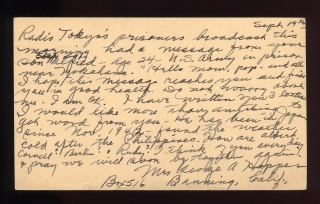 Sept 19th
Radio Tokyo's prisoners broadcast this
morning had a message from your
son Age 24 - U.S. Army in prison
near Yokohama. "Hello mom, pop, and all
I hope this message reaches you and finds
you in good health. Do not worry about
me. I am OK. I have written you 3 letters
I would like more than anything to
get word from you. Have been in Japan
since Nov. 1942, found the weather
cold after the Philippines. How are Albert,
Cornell, Berlin & Ruby. I think of you everyday
& pray we will soon be together again."
Mrs George A Hopper
Box 516 Banning, Calif.